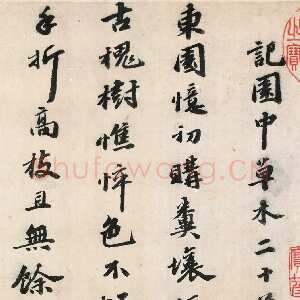 記園中草木二十
東園憶初購糞壤
古槐樹憔悴色不
手折高枝且無餘
之寶